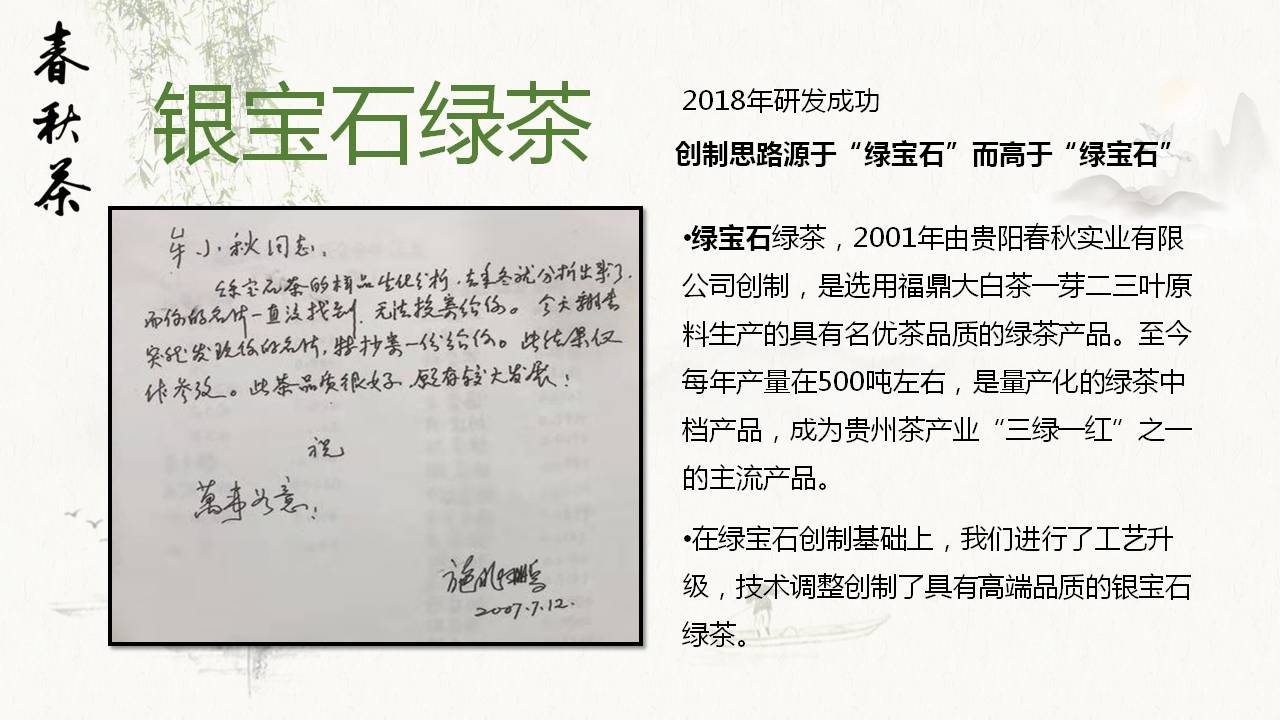 春秋茶
银宝石绿茶
牟小秋同志:
绿宝石茶的样品生化分析,去年冬就分析出来了,
而你的名片一直没找到,无法投寄给你。今天翻书
突然发现你的名片,特抄寄一份给你。此结果仅
作参考。此茶品质很好,愿有较大发展!
祝
萬事如意!
施
2007.7.12.
2018年研发成功
创制思路源于“绿宝石”而高于“绿宝石”
•绿宝石绿茶，2001年由贵阳春秋实业有限
公司创制，是选用福鼎大白茶一芽二三叶原
料生产的具有名优茶品质的绿茶产品。至今
每年产量在500吨左右，是量产化的绿茶中
档产品，成为贵州茶产业“三绿一红”之一
的主流产品。
•在绿宝石创制基础上，我们进行了工艺升
级，技术调整创制了具有高端品质的银宝石
绿茶。